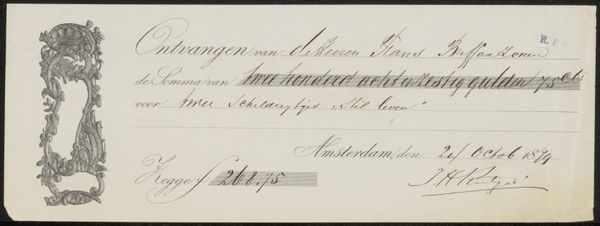 Ontvangen van de Heeren Frans Buffa & Zonen
de Somma van twee honderd acht en zestig gulden 75 cts
voor twee Schilderijtjes „Stil leven"
Amsterdam, den 24 Octob 1879
Zegge f 268.75